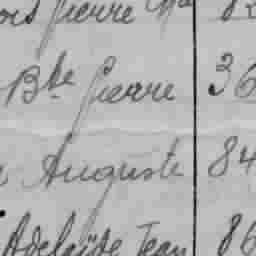 Pierre
Bte Pierre 36
Auguste 84
Adelaïde Jean 86